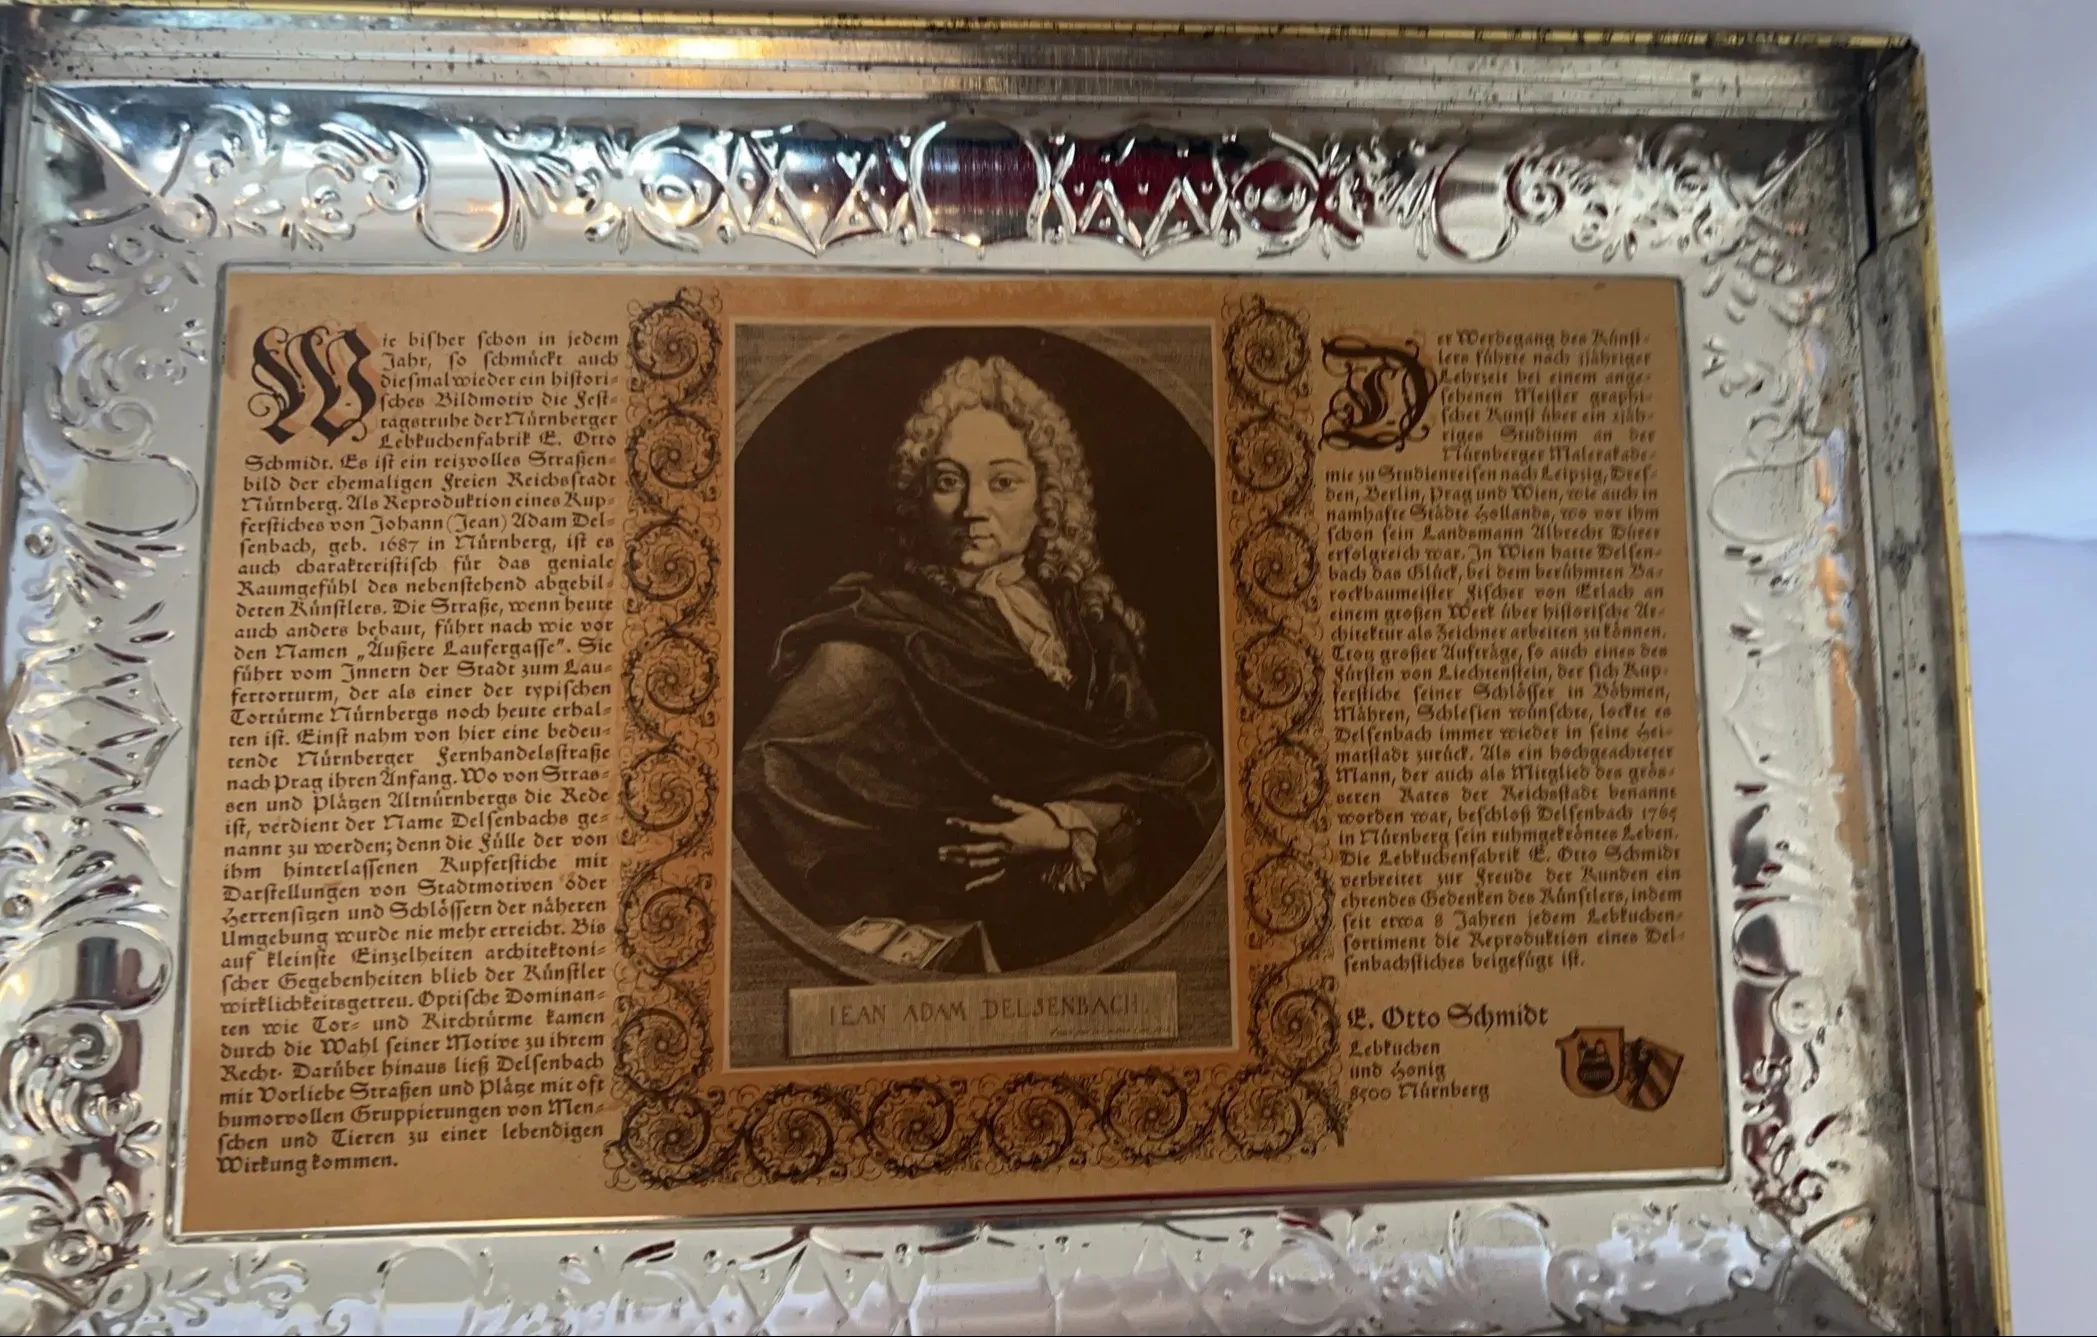 Wie bisher schon in jedem
Jahr, so schmückt auch
diesmal wieder ein histori-
sches Bildmotiv die Fest-
tagstruhe der Nürnberger
Lebkuchenfabrik E. Otto
Schmidt. Es ist ein reizvolles Straßen-
bild der ehemaligen Freien Reichsstadt
Nürnberg. Als Reproduktion eines Kup-
ferstiches von Johann (Jean) Adam Del-
senbach, geb. 1687 in Nürnberg, ist es
auch charakteristisch für das geniale
Raumgefühl des nebenstehend abgebil-
deten Künstlers. Die Straße, wenn heute
auch anders bebaut, führt nach wie vor
den Namen „Äußere Laufergasse". Sie
führt vom Innern der Stadt zum Lau-
fertorturm, der als einer der typischen
Tortürme Nürnbergs noch heute erhal-
ten ist. Einst nahm von hier eine bedeu-
tende Nürnberger Fernhandelsstraße
nach Prag ihren Anfang. Wo von Stras-
sen und Plätzen Altnürnbergs die Rede
ist, verdient der Name Delsenbachs ge-
nannt zu werden; denn die Fülle der von
ihm hinterlassenen Kupferstiche mit
Darstellungen von Stadtmotiven oder
Herrensitzen und Schlössern der näheren
Umgebung wurde nie mehr erreicht. Bis
auf kleinste Einzelheiten architektoni-
scher Gegebenheiten blieb der Künstler
wirklichkeitsgetreu. Optische Dominan-
ten wie Tor- und Kirchtürme kamen
durch die Wahl seiner Motive zu ihrem
Recht. Darüber hinaus ließ Delsenbach
mit Vorliebe Straßen und Plätze mit oft
humorvollen Gruppierungen von Men-
schen und Tieren zu einer lebendigen
Wirkung kommen.
IEAN ADAM DELSENBACH.
Der Werdegang des Künst-
lers führte nach 5jähriger
Lehrzeit bei einem ange-
sehenen Meister graphi-
scher Kunst über ein 2jäh-
riges Studium an der
Nürnberger Malerakade-
mie zu Studienreisen nach Leipzig, Dres-
den, Berlin, Prag und Wien, wie auch in
namhafte Städte Hollands, wo vor ihm
schon sein Landsmann Albrecht Dürer
erfolgreich war. In Wien hatte Delsen-
bach das Glück, bei dem berühmten Ba-
rockbaumeister Fischer von Erlach an
einem großen Werk über historische Ar-
chitektur als Zeichner arbeiten zu können.
Trotz großer Aufträge, so auch eines des
Fürsten von Liechtenstein, der sich Kup-
ferstiche seiner Schlösser in Böhmen,
Mähren, Schlesien wünschte, lockte es
Delsenbach immer wieder in seine Hei-
matstadt zurück. Als ein hochgeachteter
Mann, der auch als Mitglied des grös-
seren Rates der Reichsstadt benannt
worden war, beschloß Delsenbach 1765
in Nürnberg sein ruhmgekröntes Leben.
Die Lebkuchenfabrik E. Otto Schmidt
verbreitet zur Freude der Kunden ein
ehrendes Gedenken des Künstlers, indem
seit etwa 8 Jahren jedem Lebkuchen-
sortiment die Reproduktion eines Del-
senbachstiches beigefügt ist.
E. Otto Schmidt
Lebkuchen
und Honig
8500 Nürnberg